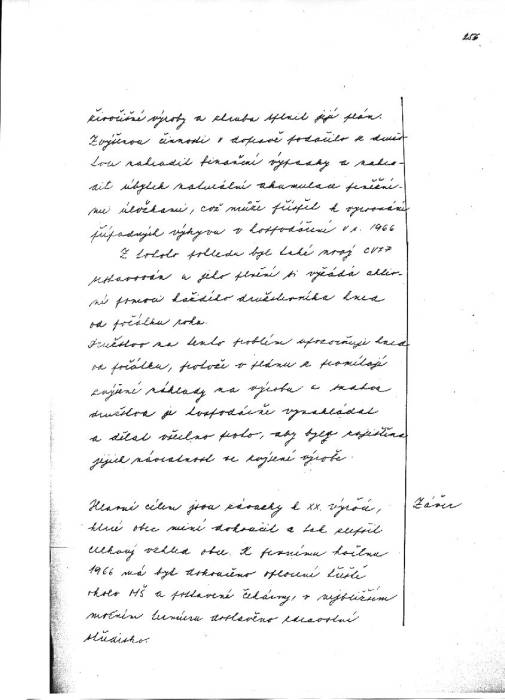 256
živočišné výroby a slouba splnil její plán.
Zvýšenou činností v dopravě podařilo se druž-
stvu nahradit finanční výpadky a nahra-
dit úbytek naturální akumulace peněžní-
mi úložkami, což může přispět k vyrovnání
případných výkyvů v hospodáření v r. 1966
Z tohoto pohledu byl také nový CVZP
sestavován a jeho plnění si vyžádá aktiv-
ní pomoci každého družstevníka hned
od počátku roku.
Družstvo na tento problém upozorňuje hned
od počátku, protože v plánu se promítají
zvýšené náklady na výrobu a snahou
družstva je hospodárně vynakládat
a dělat všechno proto, aby byla zajištěna
jejich návratnost ve zvýšené výrobě.
Závěr
Hlavní cílem jsou závazky k XX. výročí,
které obec míní dokončit a tak zlepšit
celkový vzhled obce. K prvnímu květnu
1966 má být dokončeno oplocení hřiště
okolo MŠ a postavení čekárny, v nejbližším
možném termínu dostavěno zdravotní
středisko.